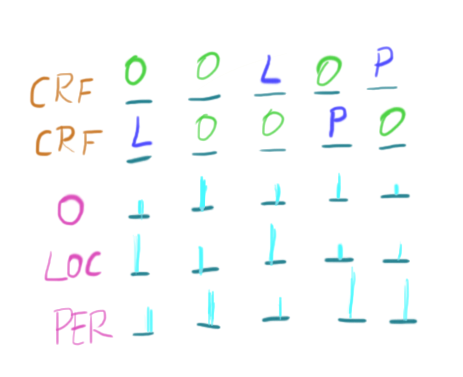 CRF O O L O P
CRF L O O P O
O
LOC
PER